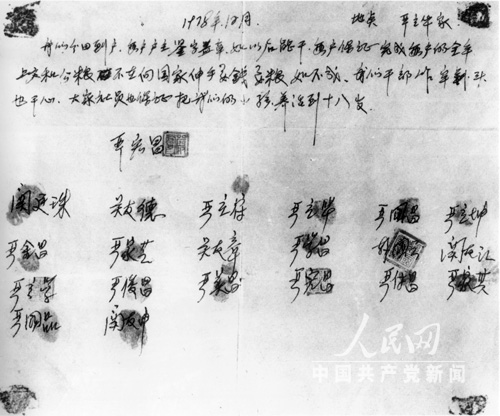 1978年12月. 地点 严立华家
我们分田到户,每户户主签字盖章,如以后能干,每户保证完成每户的全年
上交和公粮 不在向国家伸手要钱要粮,如不成,我们干部作牢刹头
也干心,大家社员也保证把我们的小孩养活到十八岁.
严宏昌
关廷珠 关友德 严立符 严立华 严国昌 严立坤
严金昌 严家芝 关友章 严学昌 韩国云 关友江
严立学 严俊昌 严美昌 严宏昌 严付昌 严家其
严国品 关友申
人民网
中国共产党新闻